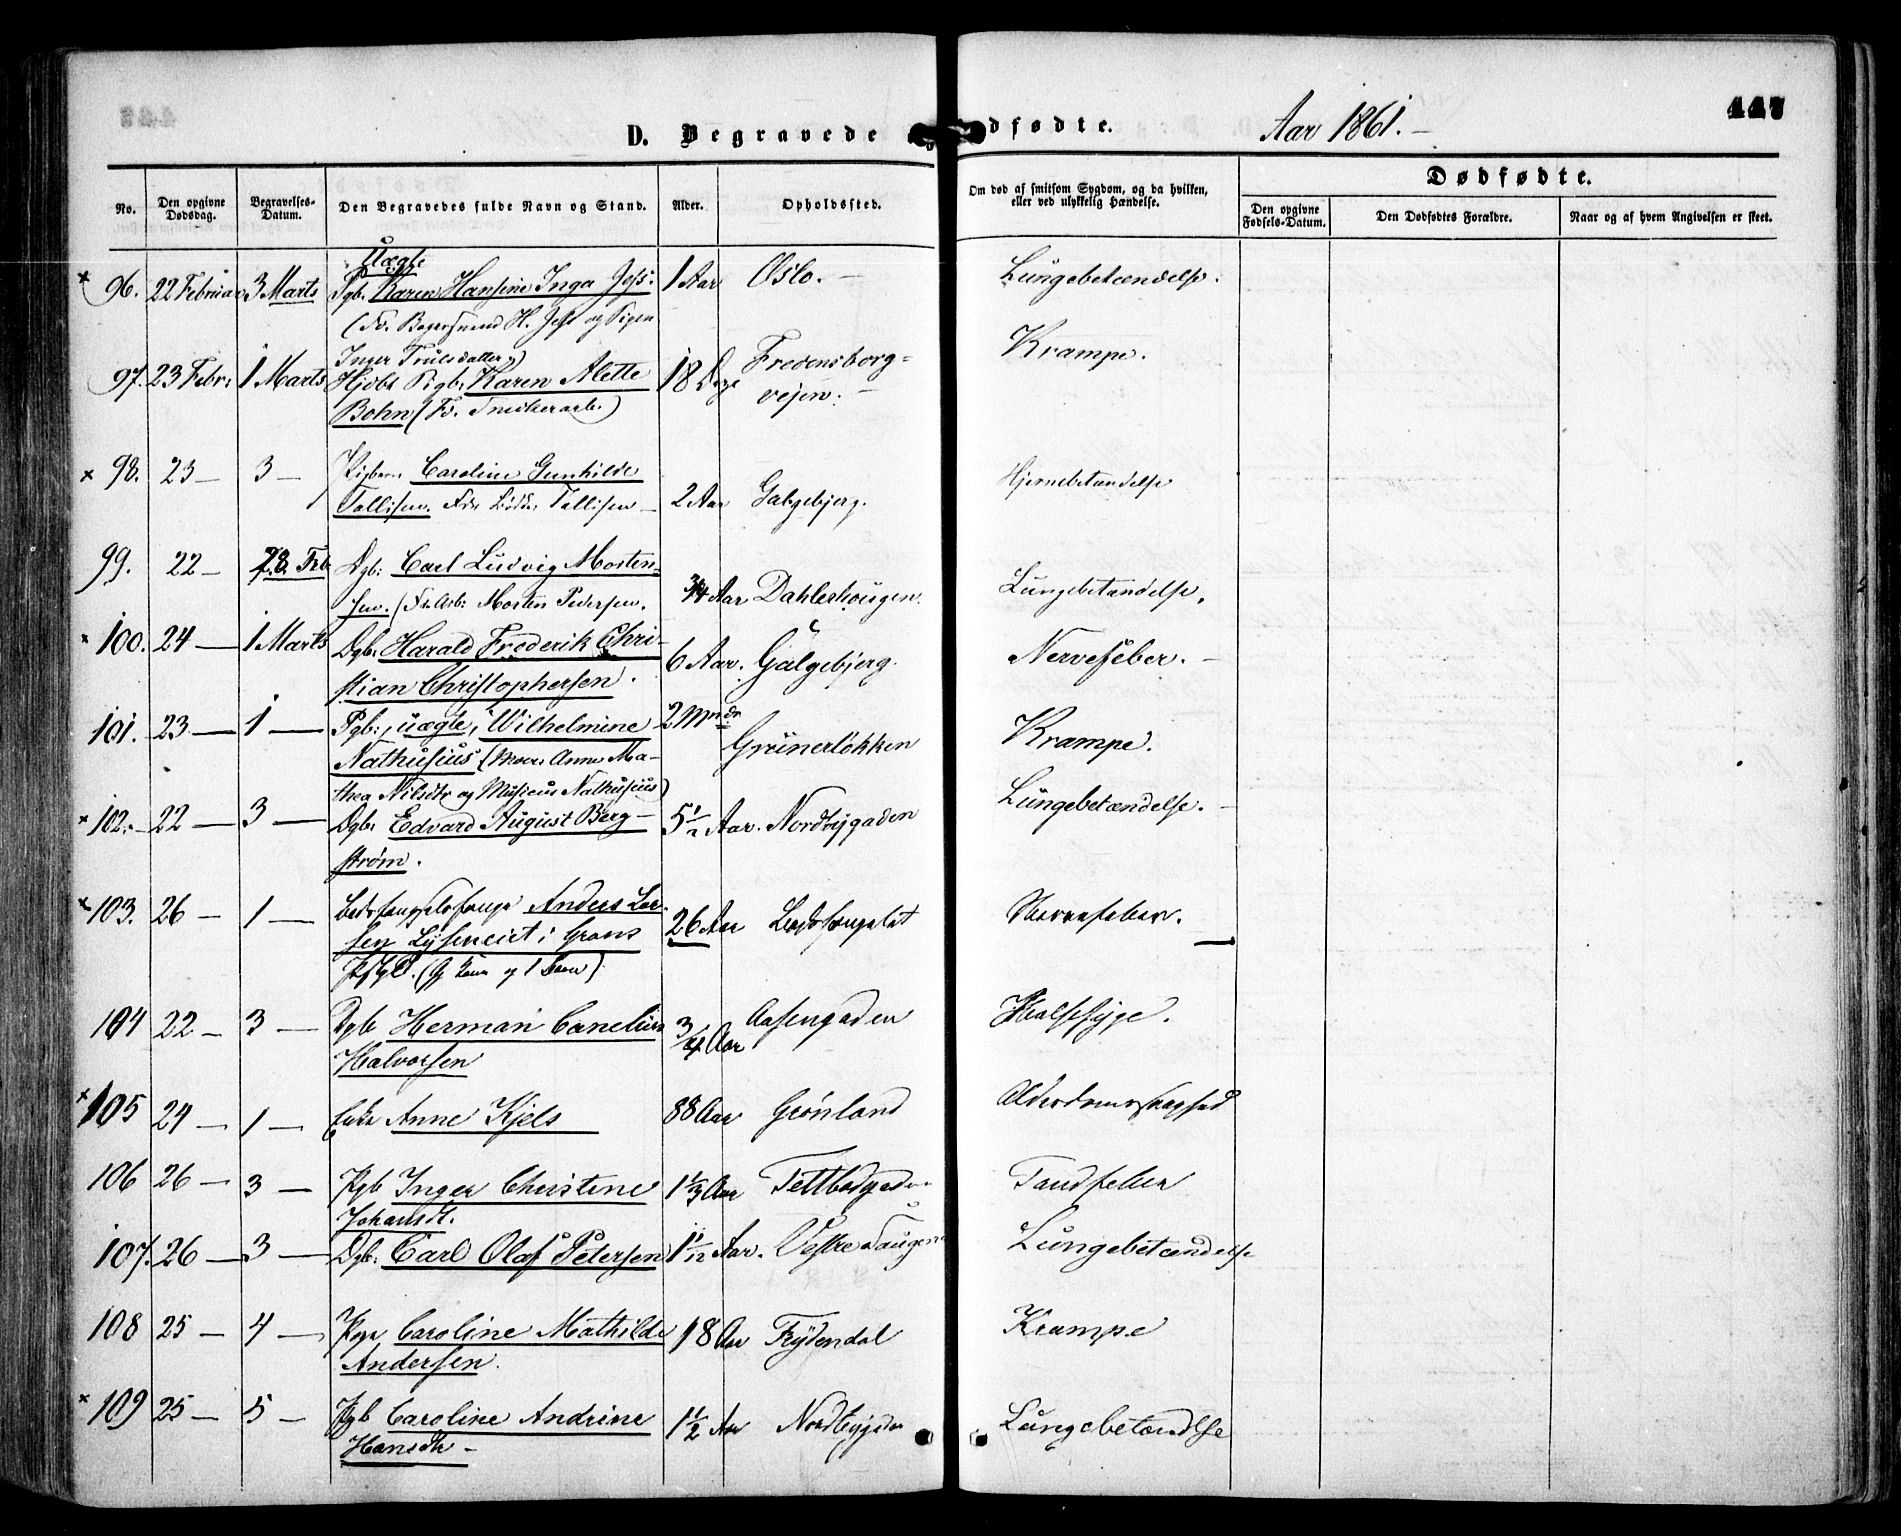 447
D. Begravede og Dødfødte.
Aar 1861.
No.
Den opgivne Dødsdag.
Begravelses-Datum.
Den Begravedes fulde Navn og Stand.
Alder.
Opholdssted.
Om død af smitsom Sygdom, og da hvilken, eller ved ulykkelig Hændelse.
Dødfødte.
Den opgivne Fødsels-Datum.
Den Dødfødtes Forældre.
Naar og af hvem Angivelsen er skeet.
Uægte
× 96. 22 Februar 3 Marts Pgb. Karen Hansine Inga Jess. 1 Aar Oslo. — Lungebetændelse.
(Fr. Bagersvend H. Jess og Pigen
Inger Trulsdatter)
97. 23 Febr. 1 Marts Hjdbt Pigb. Karen Alette 18 Dage Fredensborg= Krampe.
Bohn (Fr. Snedkerarb.) vejen. —
× 98. 23 — 3 — Pigbarn Caroline Gunhilde Hjernebetændelse
Tollisen. Tollisen — 2 Aar Galgebjerg.
99. 22 — 28. Feb Dgb: Carl Ludvig Morten=
sen. (Fr. Arb: Morten Pedersen. 3/4 Aar Dahlerhougen. Lungebetændelse.
× 100. 24 — 1 Marts Dgb. Harald Frederik Chri- 6 Aar. Galgebjerg. Nervefeber. —
stian Christophersen.
101. 23 — 1 — Pgb:, uægte, Wilhelmine 2 Mndr Grünerløkken Krampe.
Nathusius (Moer Anne Ma-
thea Nilsdtr og Musicus Nathusius)
× 102. — 22 — 3 — Dgb. Edvard August Berg- 5 1/2 Aar. Nordbygaden Lungebetændelse. —
strøm.
× 103. 26 — 1 — Bodsfængselsfange Anders Lar- 26 Aar Bodsfængslet Nervefeber. —
sen Lyseneiet i Grans
Pgjld. (Gj. Kone og 1 Barn).
104 22 — 3 — Dgb Herman Cornelius 3/4 Aar Aasengaden Halssyge.
Halvorsen
× 105 24 — 1 — Enke Anne Kjels 88 Aar Grønland Alderdomssvaghed
106 26 — 3 — Pgb Inger Christine 1 1/3 Aar Tettbodgaden Tandfeber
Johansdt.
107. 26 — 3 — Dgb: Carl Olaf Petersen 1 1/12 Aar. Vestre Lungebetændelse
108 25 — 4 — Pige Caroline Mathilde 18 Aar Frydendal Krampe
Andersen.
× 109 25 — 5 — Pgb Caroline Andrine 1 1/2 Aar Nordbygden Lungebetændelse
Hansdtr —